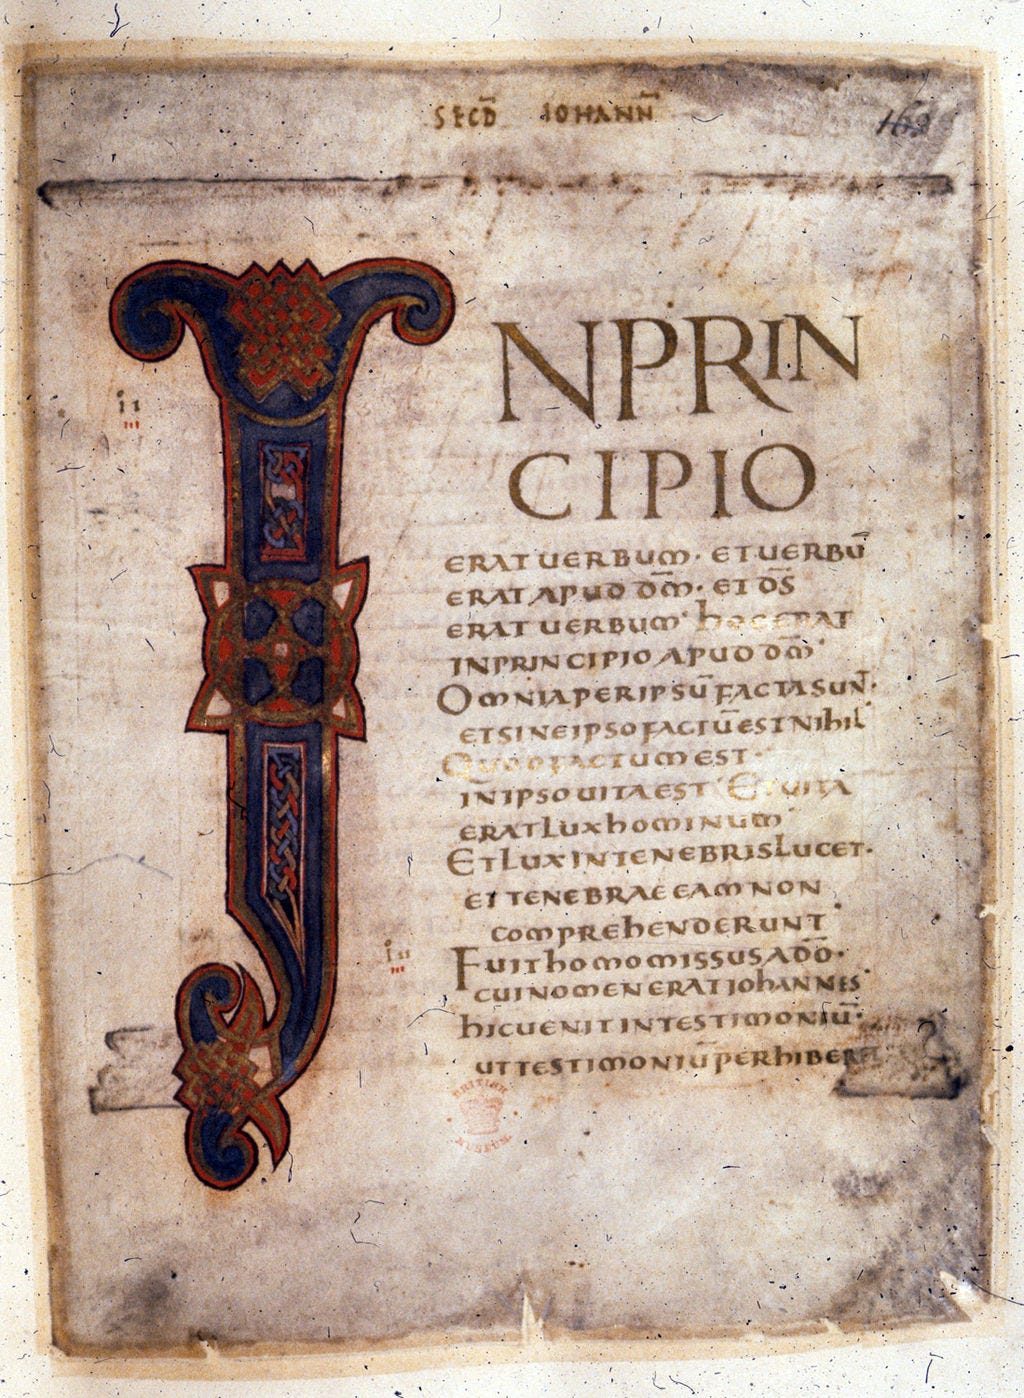 SECD̄ IOHANN̄
162
INPRIN
CIPIO
ERAT UERBUM · ET UERBŪ
ERAT APUD DM̄ · ET DS̄
ERAT UERBUM · hOC ERAT
IN PRINCIPIO APUD DM̄ ·
OMNIA PER IPSŪ FACTA SUNT̄ ·
ET SINE IPSO FACTŪ EST NIhIL
QUOD FACTUM EST ·
IN IPSO UITA EST ET UITA
ERAT LUX hOMINUM
ET LUX IN TENEBRIS LUCET ·
ET TENEBRAE EAM NON
COMPREhENDERUNT ·
FUIT hOMO MISSUS A DŌ ·
CUI NOMEN ERAT IOhANNES ·
hIC UENIT IN TESTIMONIŪ ·
UT TESTIMONIŪ PERhIBERET
BRITISH
MUSEUM